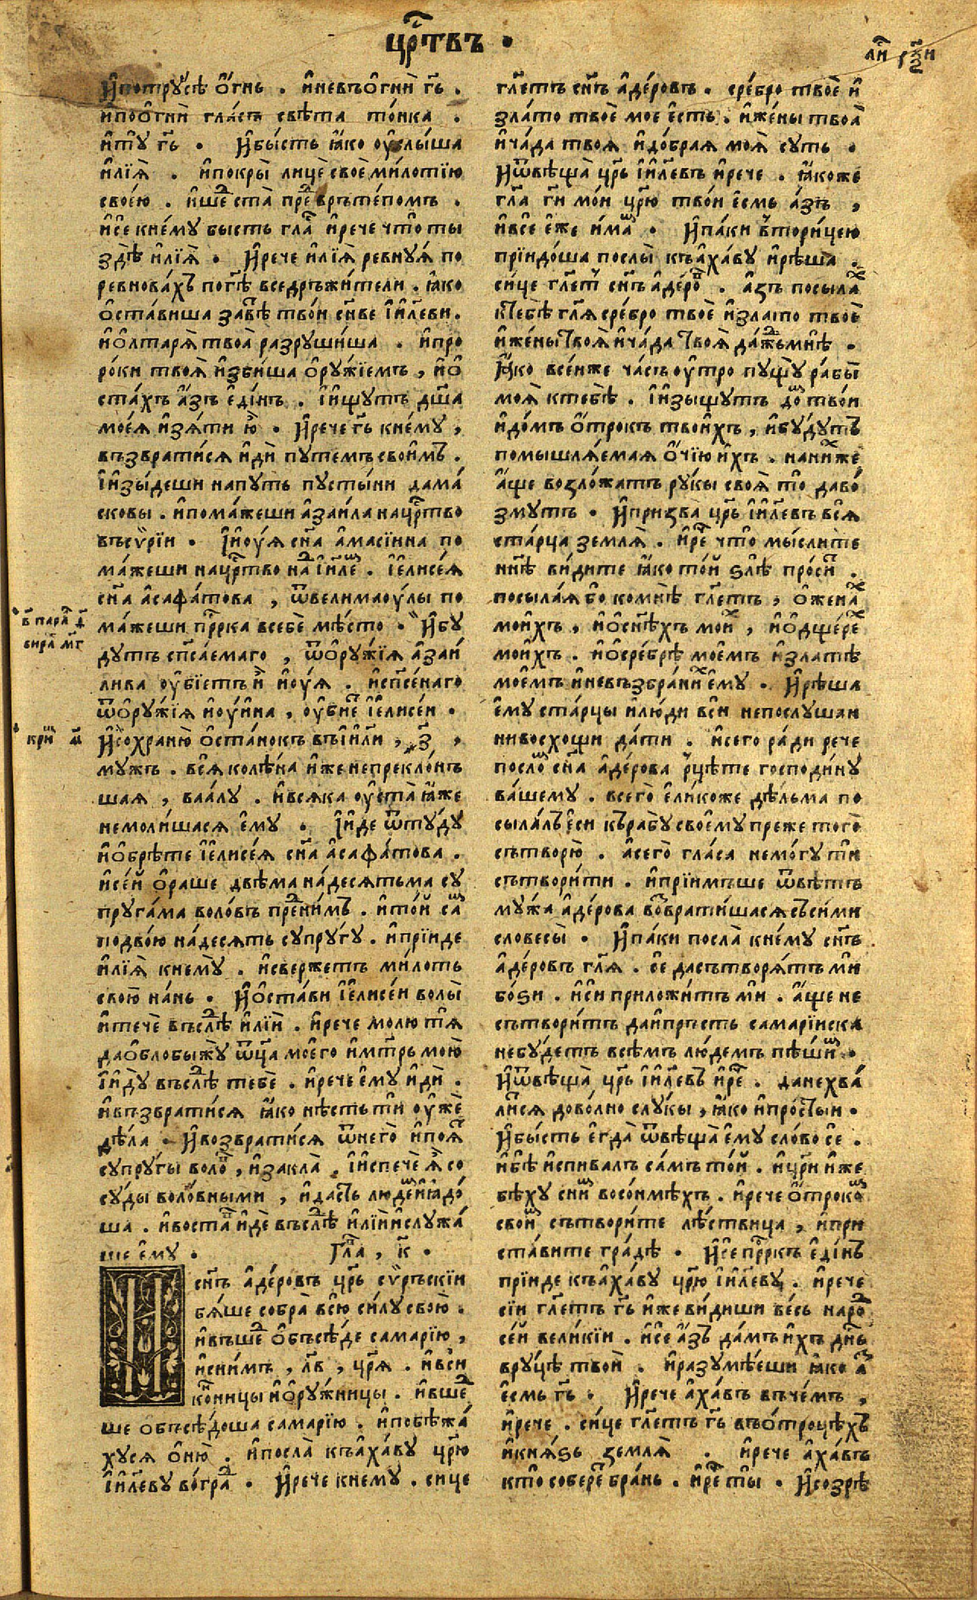 цр҃ствъ •
ли҃
И҆потру́сѣ ѻ҆́гнь . и҆невъѻ҆гнѝ гь҃ .
и҆поѻ҆гнѝ гла́съ свѣ́та то́нка .
и҆тꙋ̀ гь҃ • И҆бы́сть ꙗ҆́ко ᲂу҆слы́ша
и҆лїѧ̀ . и҆покры̀ лицѐ своѐ ми́лотїю
свое́ю . и҆шеⷣ ста̀ преⷣ врътѣ́помъ .
и҆сѐ кнемꙋ̀ бысть глаⷭ҇ и҆рече что̀ ты
здѣ̀ и҆лїѧ̀ • И҆рече и҆лїѧ̀ ревнꙋ́ѧ по
ревнова́хъ погⷭ҇ѣ вседръжи́тели . ꙗ҆́ко
ѻ҆ста́виша завѣ́ тво́и сн҃ве і҆и҃леви .
и҆ѻ҆лтарѧ̀ твоѧ̀ разрꙋши́ша . и҆про
ро́ки твоѧ̀ и҆зби́ша ѻ҆рꙋ́жїемъ , и҆ѻ҆
ста́хъ а҆́зъ є҆ди́нъ . і҆и҆́щꙋтъ дш҃а
моеѧ̀ и҆зѧ́ти ю҆̀ . И҆рече гь҃ кнемꙋ̀ ,
възврати́сѧ и҆дѝ пꙋте́мъ свои́мъ .
і҆и҆зы́деши напꙋ́ть пꙋсты́ни дама́
сковы . и҆пома́жеши а҆заи́ла нацр҃тво
въсѷ́рїи • І҆и҆ꙋ́ѧ сн҃а а҆масі́ина по
ма́жеши нацр҃тво наⷣ і҆и҃леⷨ . і҆є҆лисе́ѧ
сн҃а а҆сафа́това , ѿвелимаꙋ́лы по
ма́жеши прⷪ҇рка всебѐ мѣ́сто • И҆бꙋ́
дꙋтъ спⷭ҇аемаго , ѿѻ҆рꙋ́жїѧ а҆заи́
лива ᲂу҆бїе́тъ и҆̀ и҆ꙋ́ѧ . и҆спⷭ҇е́наго
ѿѻ҆рꙋ́жїѧ и҆ꙋ́ина , ᲂу҆бїеⷮ і҆є҆лисе́и •
И҆сохраню̀ ѻ҆ста́нокъ въі҆и҃ли , ҂з҃ ,
мꙋ́жъ . всѧ̀ колѣ́на и҆же непрекло́нъ
шаѧ , ваа́лꙋ . и҆всѧка ᲂу҆ста̀ ꙗ҆́же
немоли́шасѧ є҆мꙋ̀ • І҆и҆́де ѿтꙋ́дꙋ
и҆ѻ҆брѣ́те і҆є҆лисе́ѧ сн҃а а҆сафа́това .
и҆се́й ѻ҆ра́ше двѣма на́десѧтьма сꙋ
прꙋ́гама воло́въ преⷣ ни́мъ . и҆то́й саⷨ
подво́ю на́десѧть сꙋпрꙋ́гꙋ . и҆прїи́де
и҆лїѧ̀ кнемꙋ̀ . и҆све́ржетъ ми́лоть
свою̀ на́нь • И҆ѻ҆ста́ви і҆є҆лисе́и волы̀
и҆течѐ въслⷣѣ и҆лїѝ . и҆рече молю́ тѧ
даѻ҆блобы́жꙋ ѿц҃а моего̀ и҆мт҃рь мою̀
і҆и҆дꙋ̀ въслⷣѣ тебѐ . и҆рече є҆мꙋ̀ и҆дѝ .
и҆възврати́сѧ ꙗ҆́ко нѣсть тѝ ᲂу҆жѐ
дѣ́ла • И҆возврати́сѧ ѿнего̀ и҆поѧⷮ
сꙋпрꙋ́гы волоⷡ , и҆закла̀ . і҆и҆спечѐ ѧ҆̀ со
сꙋ́ды воло́вными , и҆да́сть лю́деⷨ и҆ꙗ҆до́
ша . и҆воста́ въ и҆́де въслⷣѣ и҆лїѝ и҆слꙋжа́
ше є҆мꙋ̀ • Глⷡ҇а , к҃ •
И сн҃ъ а҆де́ровъ цр҃ь сѷ́рьскїи
бѧ́ше собра̀ всю̀ си́лꙋ свою̀ .
и҆въше́ ѻ҆бъсѣ́де самарі́ю ,
и҆сни́мъ , лв҃ , цр҃ѧ . и҆всѝ
ко́нницы и҆ѻ҆рꙋ́жницы . и҆вшеⷣ
ше ѻбъсѣ́доша самарі́ю . и҆побѣжа́
хꙋсѧ ѻ҆ню̀ . и҆посла̀ къа҆ха́вꙋ цр҃ю
і҆и҃левꙋ во́граⷣ • И҆рече кнемꙋ . сице
глⷭ҇етъ сн҃ъ а҆де́ровъ . сре́бро твоѐ и҆
зла́то твоѐ мое є҆́сть . и҆же́ны твоѧ̀
и҆ча́да твоѧ̀ и҆до́браѧ моѧ̀ сꙋть •
И҆ѿвѣща̀ цр҃ь і҆и҃левъ и҆рече . ꙗ҆коже
гл҃а гн҃ мо́и цр҃ю тво́и є҆смь а҆́зъ ,
и҆все є҆́же и҆́маⷨ • И҆па́ки в҆тори́цею
прїидо́ша послы̀ къа҆ха́вꙋ и҆рѣ́ша .
си́це глⷭ҇етъ сн҃ъ а҆де́роⷡ . а҆́зъ посылаⷯ
ктебѣ̀ гл҃ѧ сре́бро твоѐ и҆зла́то твоѐ
и҆же́ны твоѧ̀ и҆ча́да твоѧ̀ да́жⷣьмнѣ •
Ꙗ҆́ко все́нже ча́съ ᲂу҆́тро пꙋщꙋ̀ рабы̀
моѧ̀ ктебѣ̀ . і҆и҆зы́щꙋтъ доⷨ тво́и
и҆до́мъ ѻ҆́трокъ твои́хъ , и҆бꙋ́дꙋтъ
помышлѧ́емаѧ ѻ҆́чїю и҆́хъ . нани́хже
а҆́ще возло́жатъ рꙋ́кы своѧ̀ то̀ даво́
змꙋтъ • И҆призва̀ цр҃ь і҆и҃левъ всѧ̀
ста́рца землѧ̀ . и҆реⷱ҇ что̀ мы́слите
нн҃ѣ ви́дите ꙗ҆́ко то́й ѕлѣ̀ про́сиⷮ .
посыла́ѧ бо комнѣ̀ глⷭ҇етъ , ѻ҆же́наⷯ
мои́хъ , и҆ѻ҆сн҃ѣхъ моиⷯ , и҆ѻ҆дще́реⷯ
мои́хъ . и҆ѻ҆сребрѣ̀ мое́мъ и҆зла́тѣ
мое́мъ и҆невъзбрани́хъ є҆мꙋ̀ . И҆рѣ́ша
є҆мꙋ̀ ста́рцы и҆лю́ди всѝ непослꙋ́шаи
нивосхощи да́ти . и҆сего̀ ра́ди рече
послоⷨ сн҃а а҆де́рова рцѣ́те господи́нꙋ
ва́шемꙋ . всего̀ є҆ли́коже дѣ́льма по
сыла́лъ є҆сѝ къ рабꙋ̀ своемꙋ̀ преже того̀
сътворю̀ . а҆сего̀ гла́са немогꙋ́ ти
сътвори́ти . и҆прїи́мъше ѿвѣ́тъ
мꙋ́жа а҆де́рова возврати́шасѧ съси́ми
словесы̀ • И҆па́ки посла̀ кнемꙋ̀ сн҃ъ
а҆де́ровъ гл҃ѧ . сѐ дасътворѧ́тъ мѝ
бо́ѕи . и҆сѝ приложа́тъ мѝ . а҆́ще не
сътвори́тъ даи҆пръсть самарі́искаѧ
небꙋ́детъ всѣ́мъ лю́демъ пѣ́шиⷨ •
И҆ѿвѣща̀ цр҃ь і҆и҃левъ и҆реⷱ҇ . данехва́
ли́сѧ дово́лно слꙋ́кы , ꙗ҆́ко и҆про́стыи •
И҆бы́сть є҆гда̀ ѿвѣща̀ є҆мꙋ̀ сло́во сѐ .
и҆бѣ̀ и҆спива́лъ са́мъ то́й . и҆цр҃и и҆же
бѣ́хꙋ сни́ⷨ восо́имѣхъ . и҆рече ѻ҆́трокоⷨ
свои́ⷨ сътвори́те лѣ́ствица , и҆при
ста́вите гра́дѣ • И҆сѐ прⷪ҇ркъ є҆ди́нъ
прїи́де къа҆ха́вꙋ цр҃ю і҆и҃левꙋ . и҆рече
сїѝ глⷭ҇етъ гь҃ и҆же ви́диши ве́сь нароⷣ
се́й вели́кїи . и҆сѐ а҆́зъ да́мъ и҆́хъ дн҃ь
врꙋ́цѣ твоѝ . и҆разꙋмѣ́еши ꙗ҆́ко а҆́зъ
є҆смь гь҃ . И҆рече а҆ха́въ въче́мъ ,
и҆рече . си́це глⷭ҇етъ гь҃ въѻ҆троцѣ́хъ
и҆кнѧ́ѕь землѧ̀ . и҆рече а҆ха́въ
кто̀ собереⷮ бра́нь . и҆реⷱ҇ ты̀ • И҆созрѣ̀